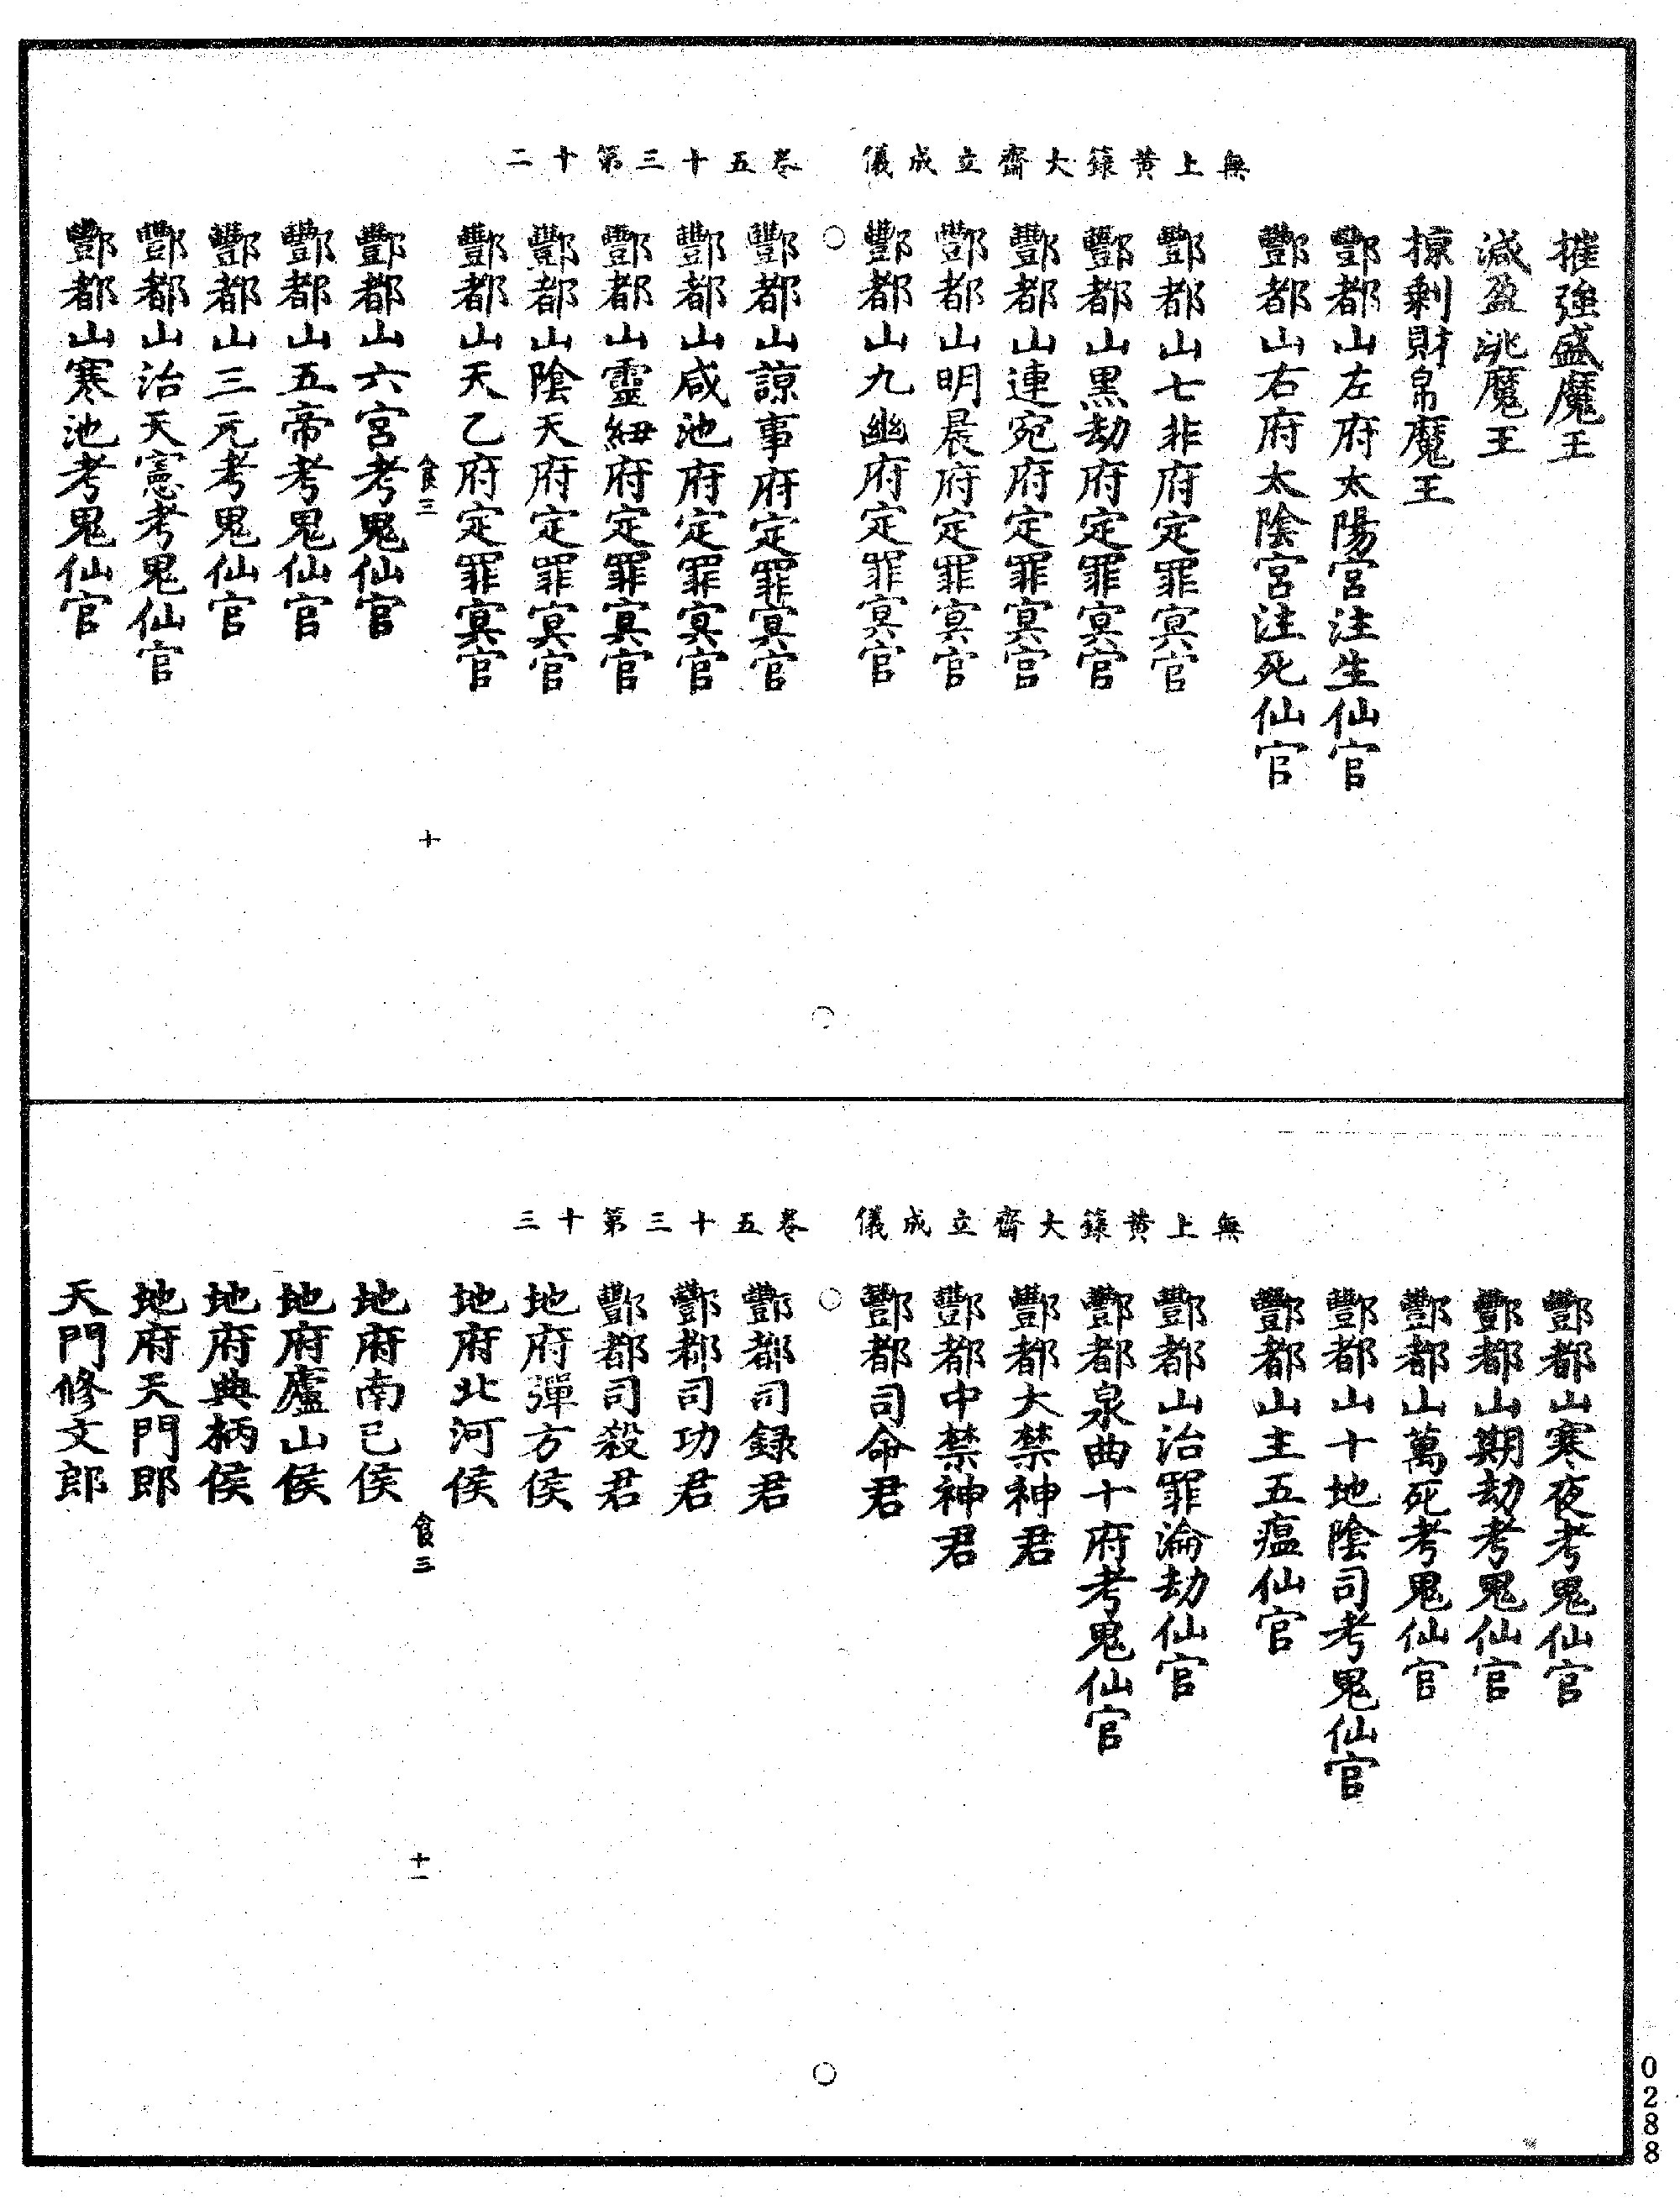 無上黃籙大齋立成儀 卷五十三第十二
摧強盛魔王
減盈洮魔王
掠剩財帛魔王
酆都山左府太陽宮注生仙官
酆都山右府太陰宮注死仙官
酆都山七非府定罪冥官
酆都山黑劫府定罪冥官
酆都山連宛府定罪冥官
酆都山明晨府定罪冥官
酆都山九幽府定罪冥官
酆都山諒事府定罪冥官
酆都山咸池府定罪冥官
酆都山靈紐府定罪冥官
酆都山陰天府定罪冥官
酆都山天乙府定罪冥官
食三
十
酆都山六宮考鬼仙官
酆都山五帝考鬼仙官
酆都山三元考鬼仙官
酆都山治天憲考鬼仙官
酆都山寒池考鬼仙官
無上黃籙大齋立成儀 卷五十三第十三
酆都山寒夜考鬼仙官
酆都山期劫考鬼仙官
酆都山萬死考鬼仙官
酆都山十地陰司考鬼仙官
酆都山主五瘟仙官
酆都山治罪淪劫仙官
酆都泉曲十府考鬼仙官
酆都大禁神君
酆都中禁神君
酆都司命君
酆都司録君
酆都司功君
酆都司殺君
地府彈方侯
地府北河侯
食三
十一
地府南巳侯
地府廬山侯
地府典柄侯
地府天門郎
天門修文郎
0288